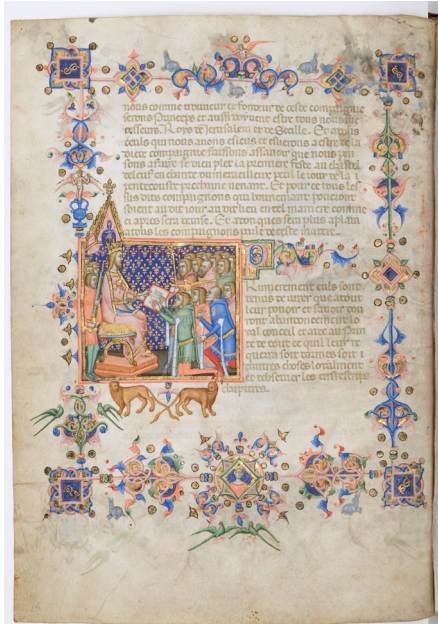 nous comme trouveur et fondeur de ceste compaignie
serons Princeps et aussi
Roys de Jerusalem et de Secille. Et a tous
ceuls qui nous avons esleus et eslierons a estre de la
dicte compaignie faisons assavoir que nous
sons a faire se dieu plet la premiere feste au castel
de leuf en chanté du merveilleux peril le iour de la
penthecouste prochene venant. Et pour ce tous les
sus dits compaignons qui bonnement pouront
soient au dit iour au dit lieu en tel maniere comme
ci apres sera
a tous les compaignons de ceste matiere.
Premierement euls sont
tenus de iurer que a tout
leur pooir et savoir don
ront
al conseil et aide au Prin
ce de tout ce quil leur re
querra soit darmes soit d
autres choses loyalment
et
chapitres.